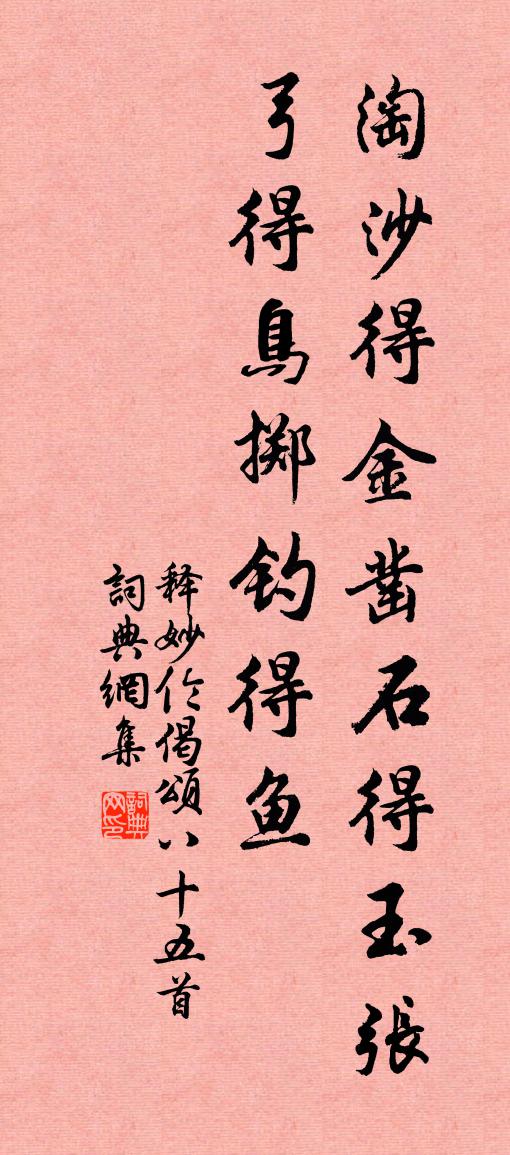 淘沙得金凿石得玉張
弓得鳥掷钓得鱼
释妙伦偈頌八十五首
詞典網集
詞典網印